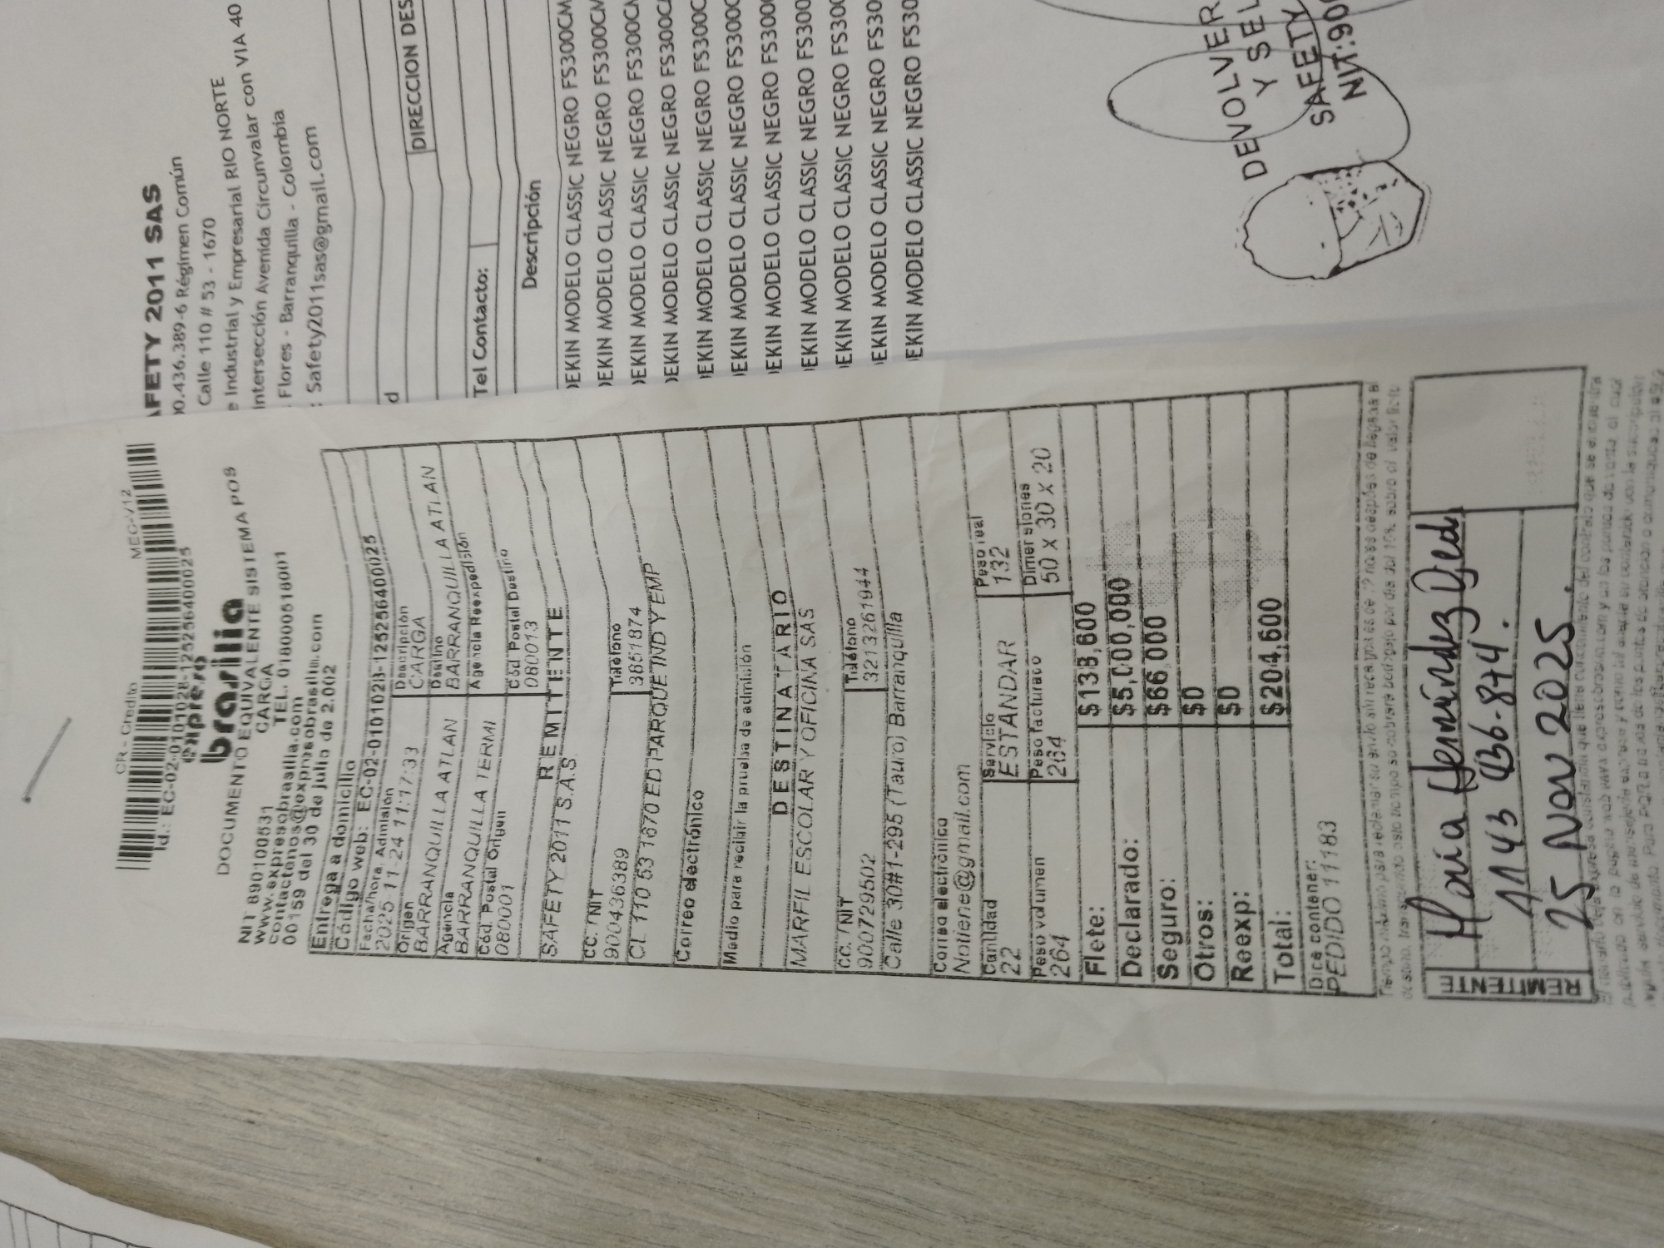 CR - Credito MEC-V12
Id.: EC-02-0101028-1252564000025
expreso
brasilia
DOCUMENTO EQUIVALENTE SISTEMA POS
CARGA
NIT 890100531 TEL. 018000518001
www.expresobrasilia.com
contactenos@expresobrasilia.com
00159 del 30 de julio de 2.002
Entrega a domicilio
Código web: EC-02-0101028-1252564000025
Fecha/hora Admisión Descripción
2025-11-24 11:17:33 CARGA
Origen Destino
BARRANQUILLA ATLAN BARRANQUILLA ATLAN
Agencia Agencia Reexpedisión
BARRANQUILLA TERMI
Cód Postal Origen Cód Postal Destino
080001 080013
REMITENTE
SAFETY 2011 S.A.S
CC. / NIT Teléfono
900436389 3851874
CL 110 53 1670 ED PARQUE IND Y EMP
Correo electrónico
Medio para recibir la prueba de admisión
DESTINATARIO
MARFIL ESCOLAR Y OFICINA SAS
CC. / NIT Teléfono
900729502 3213261944
Calle 30#1-295 (Taura) Barranquilla
Correo electrónico
Notiene@gmail.com
Cantidad Servicio Peso real
22 ESTANDAR 132
Peso volumen Peso facturado Dimensiones
264 264 50 x 30 x 20
Flete: $138,600
Declarado: $5,000,000
Seguro: $66,000
Otros: $0
Reexp: $0
Total: $204,600
Dice contener:
PEDIDO 11183
REMITENTE
María Hernández
1143 436-874.
25 Nov 2025.
AFETY 2011 SAS
00.436.389-6 Régimen Común
Calle 110 # 53 - 1670
e Industrial y Empresarial RIO NORTE
Intersección Avenida Circunvalar con VIA 40
Flores - Barranquilla - Colombia
: Safety2011sas@gmail.com
d DIRECCION DES
Tel Contacto:
Descripción
EKIN MODELO CLASSIC NEGRO FS300CM
EKIN MODELO CLASSIC NEGRO FS300CM
EKIN MODELO CLASSIC NEGRO FS300CM
EKIN MODELO CLASSIC NEGRO FS300C
EKIN MODELO CLASSIC NEGRO FS300C
EKIN MODELO CLASSIC NEGRO FS300C
EKIN MODELO CLASSIC NEGRO FS300
EKIN MODELO CLASSIC NEGRO FS300
EKIN MODELO CLASSIC NEGRO FS300
EKIN MODELO CLASSIC NEGRO FS30
EKIN MODELO CLASSIC NEGRO FS30
DEVOLVER
Y SEL
SAFETY
NIT:90